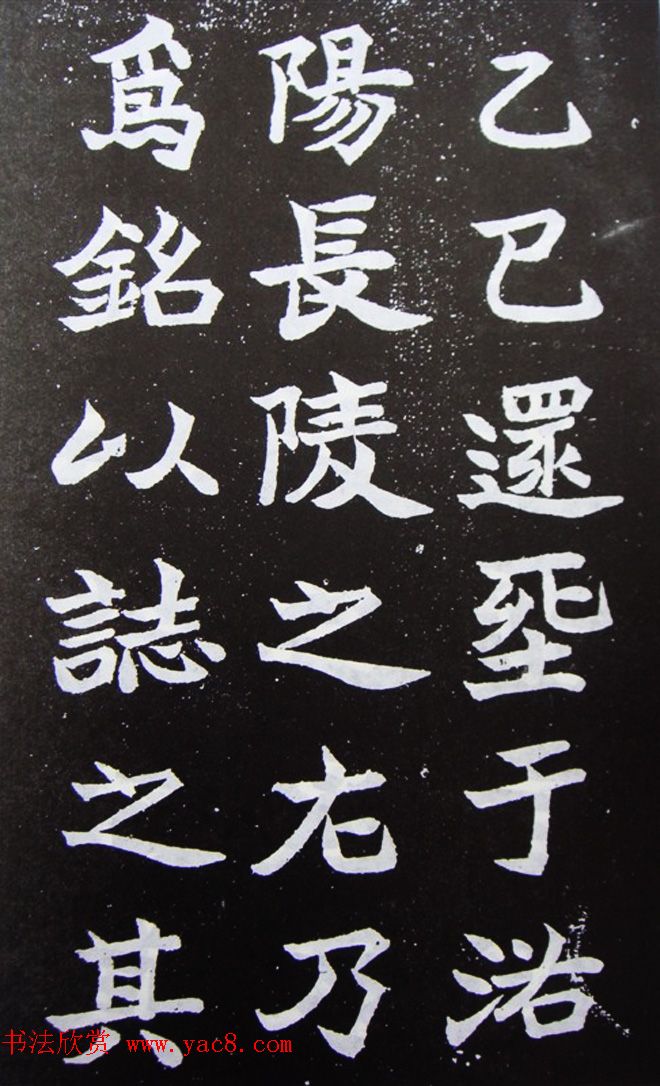 乙巳還塟于洛
陽長陵之左乃
爲銘以誌之其
书法欣赏 www.yac8.com